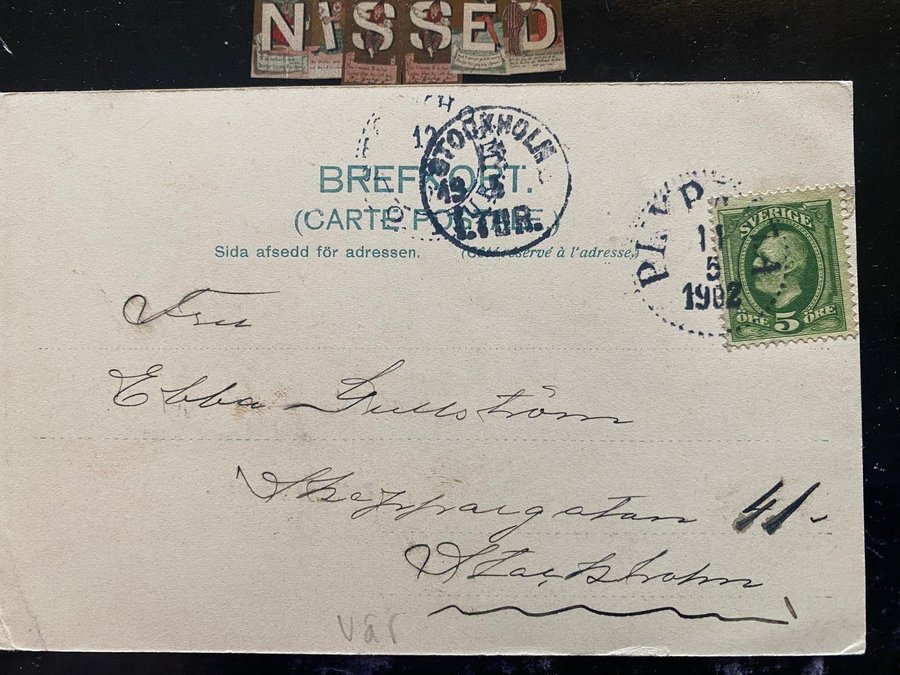 NISSED
BREFKORT.
(CARTE POSTALE)
Sida afsedd för adressen. (Côté réservé à l'adresse)
STOCKHOLM
1.TUR.
5
1902
SVERIGE
ÖRE 5 ÖRE
Fru
Ebba Gullström
Skeppargatan 41-
Stockholm